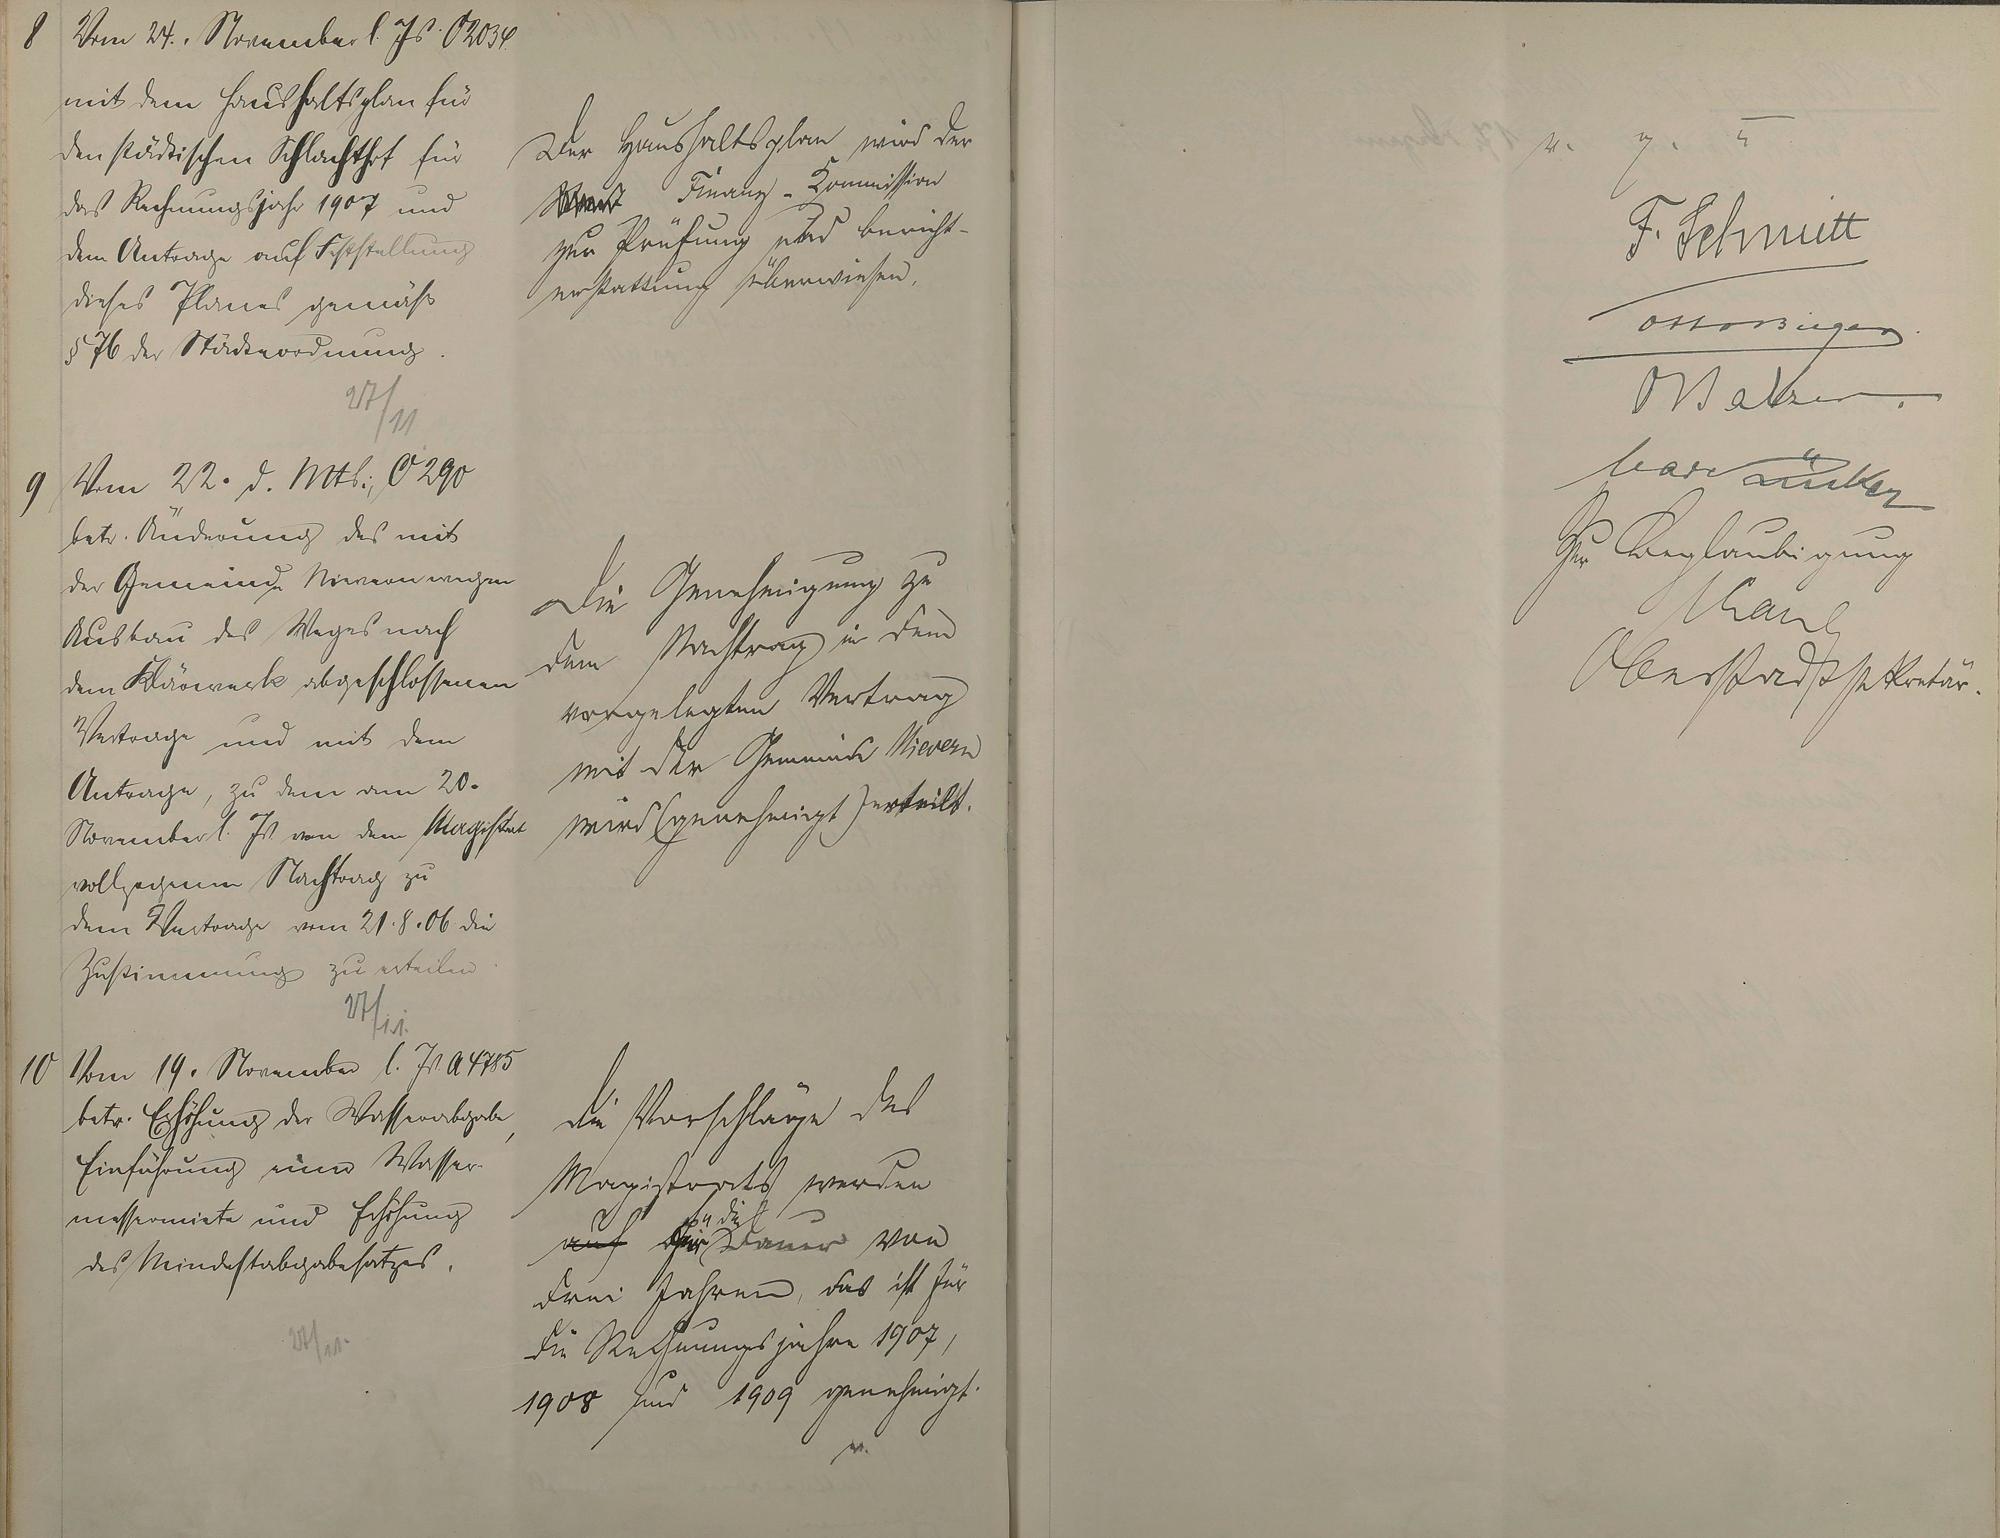 8 Vom 24. November l. Js. O 2034
mit dem Haushaltsplan für
den städtischen Schlachthof für
das Rechnungsjahr 1907 und
dem Antrage auf Feststellung
dieses Planes gemäß
§ 76 der Städteordnung.
27/11
Der Haushaltsplan wird der
Finanz-Kommission
zur Prüfung und Bericht-
erstattung überwiesen.
9 Vom 22. d. Mts., O 290
betr. Änderung des mit
der Gemeinde Nievern wegen
Ausbau des Weges nach
dem Klärwerk abgeschlossenen
Vertrage und mit dem
Antrage, zu dem am 20.
November l. Js von dem Magistrat
vollzogenen Nachtrag zu
dem Vertrage vom 21.8.06 die
Zustimmung zu erteilen.
27/11.
Die Genehmigung zu
dem Nachtrag in dem
vorgelegten Vertrag
mit der Gemeinde Nievern
wird (genehmigt) erteilt.
10 Vom 19. November l. Js. A 4785
betr. Erhöhung der Wasserabgabe,
Einführung einer Wasser-
messermiete und Erhöhung
des Mindestabgabesatzes.
27/11.
Die Vorschläge des
Magistrats werden
auf die Dauer von
drei Jahren, das ist für
die Rechnungsjahre 1907,
1908 und 1909 genehmigt.
v.
v. g. u.
F. Schmitt
O Balzer.
Zur Beglaubigung
Oberstadtsekretär.